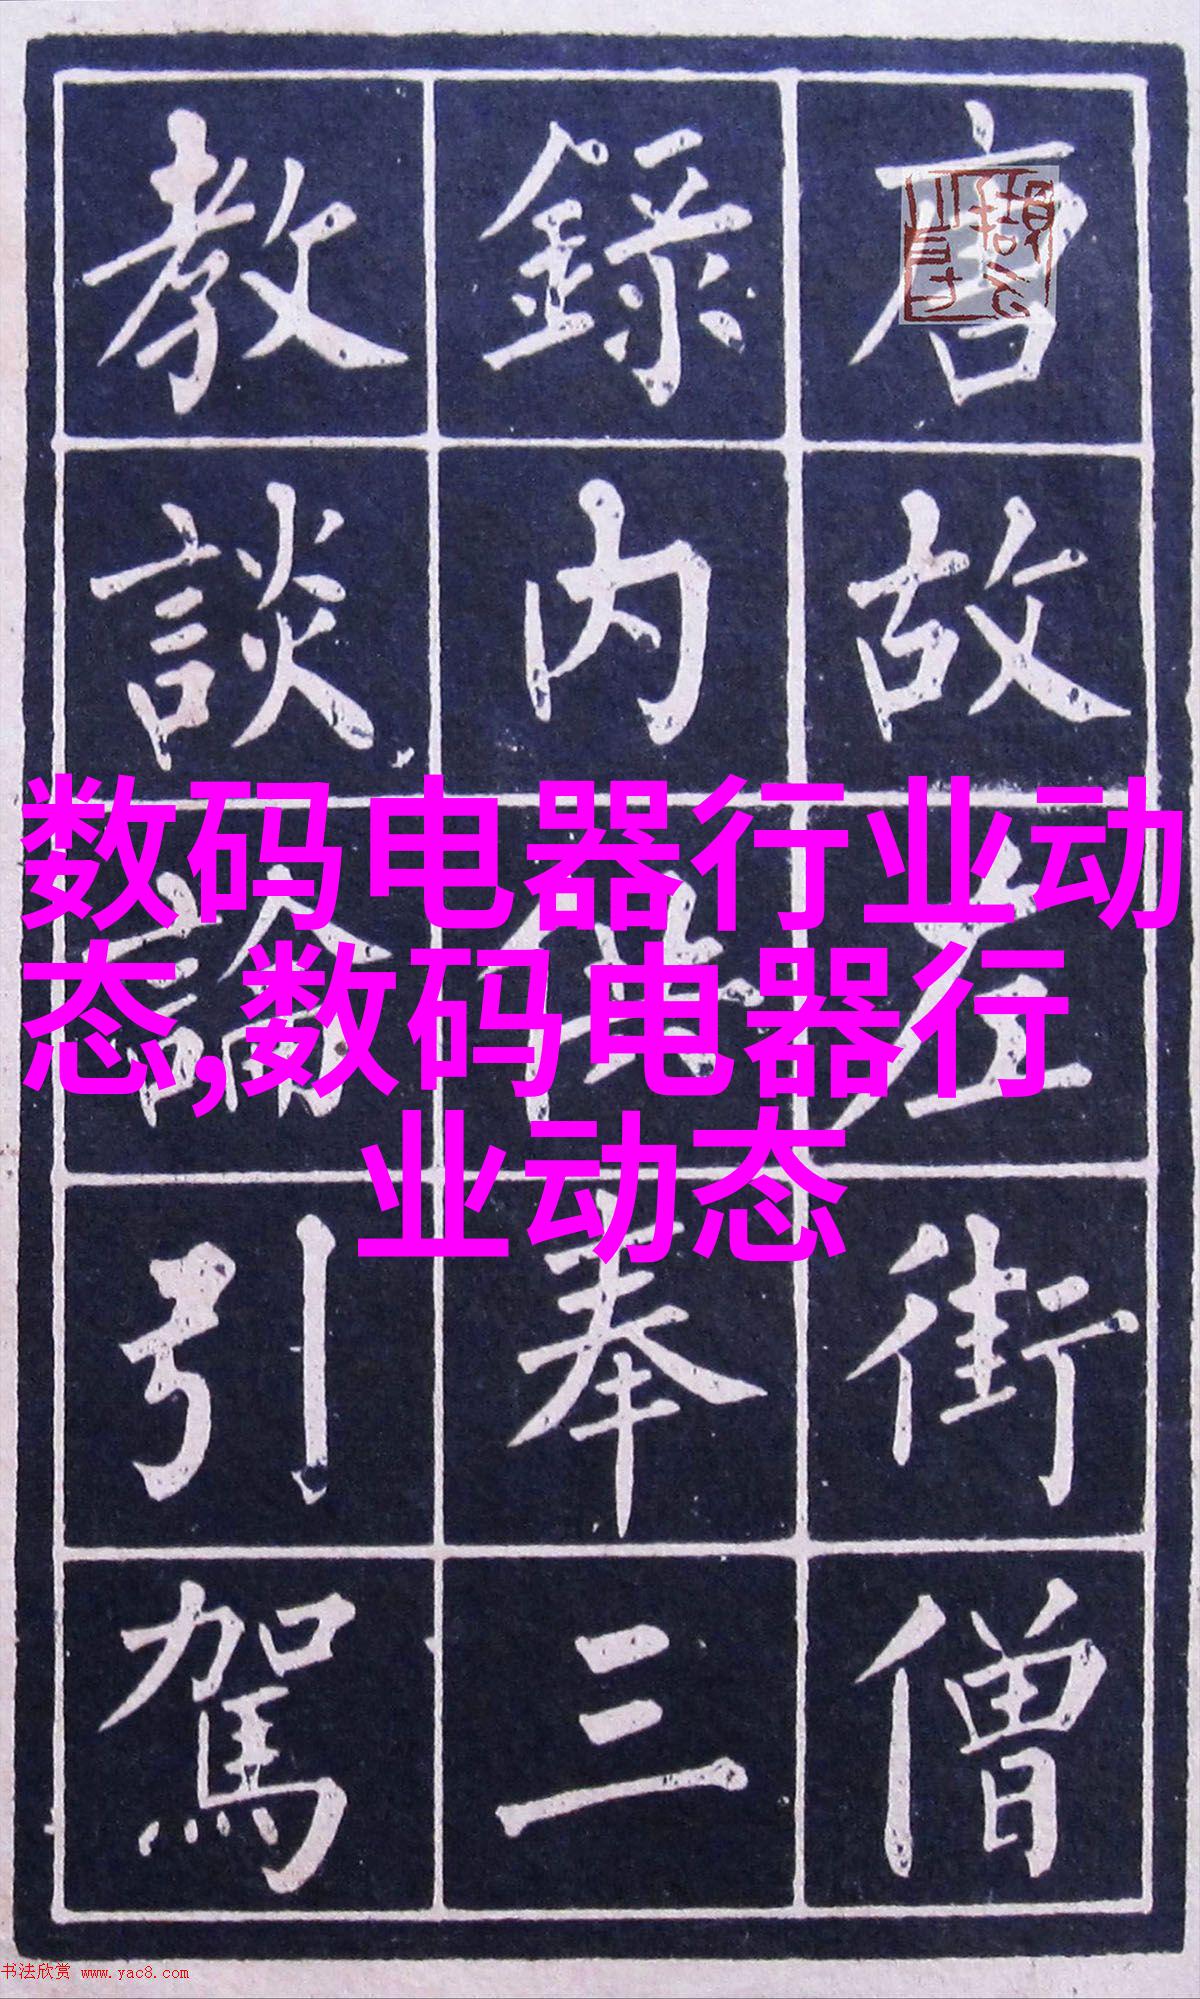 唐故左街僧
錄内供奉三
教談論引駕
数码电器行业动
态,数码电器行
业动态
书法欣赏 www.yac8.com